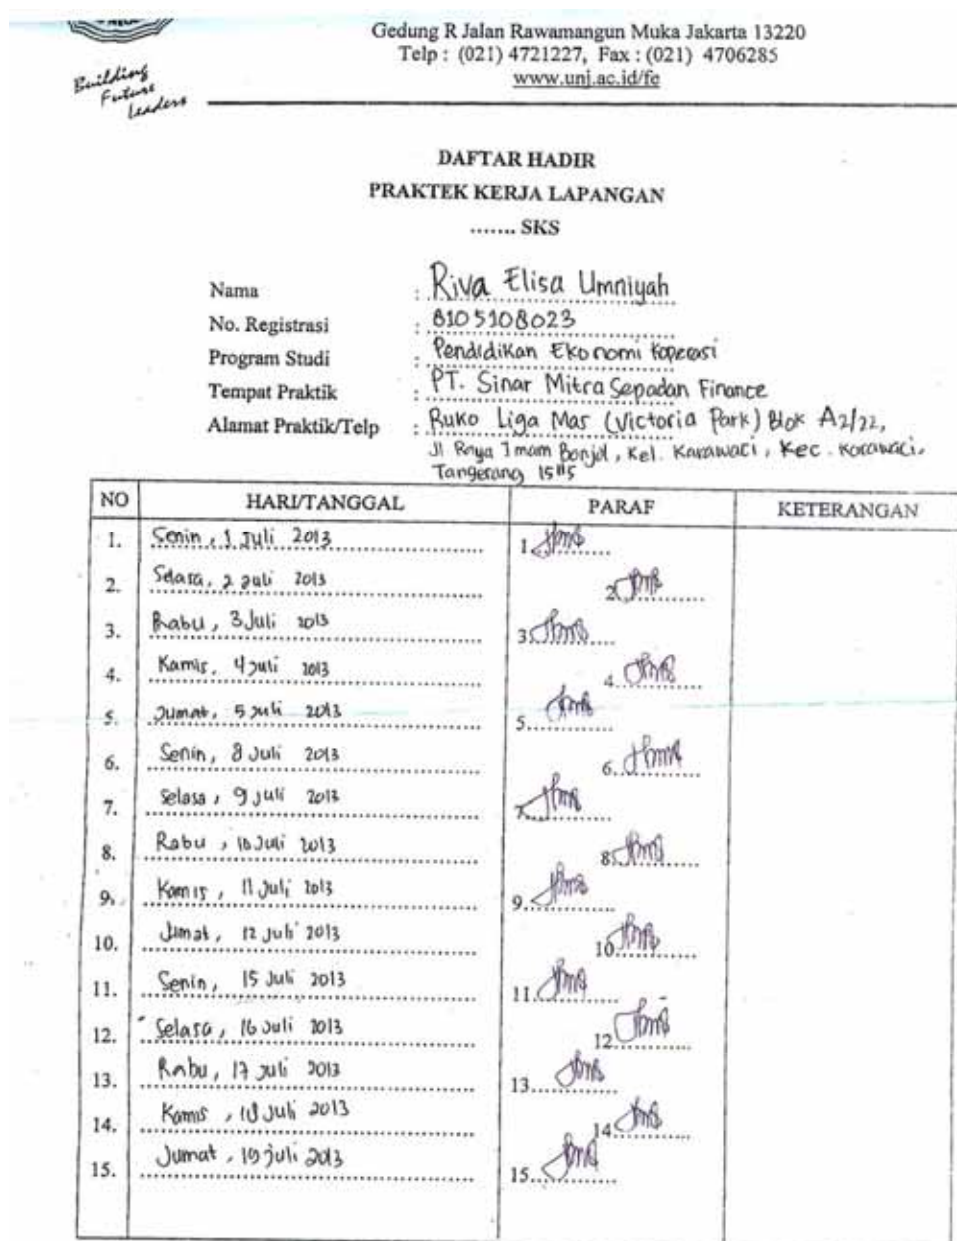 Gedung R Jalan Rawamangun Muka Jakarta 13220
Telp : (021) 4721227, Fax : (021) 4706285
www.unj.ac.id/fe
Building
Future
Leaders
DAFTAR HADIR
PRAKTEK KERJA LAPANGAN
....... SKS
Nama : Riva Elisa Umniyah
No. Registrasi : 8105108023
Program Studi : Pendidikan Ekonomi Koperasi
Tempat Praktik : PT. Sinar Mitra Sepadan Finance
Alamat Praktik/Telp : Ruko Liga Mas (Victoria Park) Blok A2/22,
Jl Raya Imam Bonjol, Kel. Karawaci, Kec. Karawaci,
Tangerang 15115
NO HARI/TANGGAL PARAF KETERANGAN
1. Senin, 1 Juli 2013 1
2. Selasa, 2 Juli 2013 2
3. Rabu, 3 Juli 2013 3
4. Kamis, 4 Juli 2013 4
5. Jumat, 5 Juli 2013 5
6. Senin, 8 Juli 2013 6
7. Selasa, 9 Juli 2013 7
8. Rabu, 10 Juli 2013 8
9. Kamis, 11 Juli 2013 9
10. Jumat, 12 Juli 2013 10
11. Senin, 15 Juli 2013 11
12. Selasa, 16 Juli 2013 12
13. Rabu, 17 Juli 2013 13
14. Kamis, 18 Juli 2013 14
15. Jumat, 19 Juli 2013 15